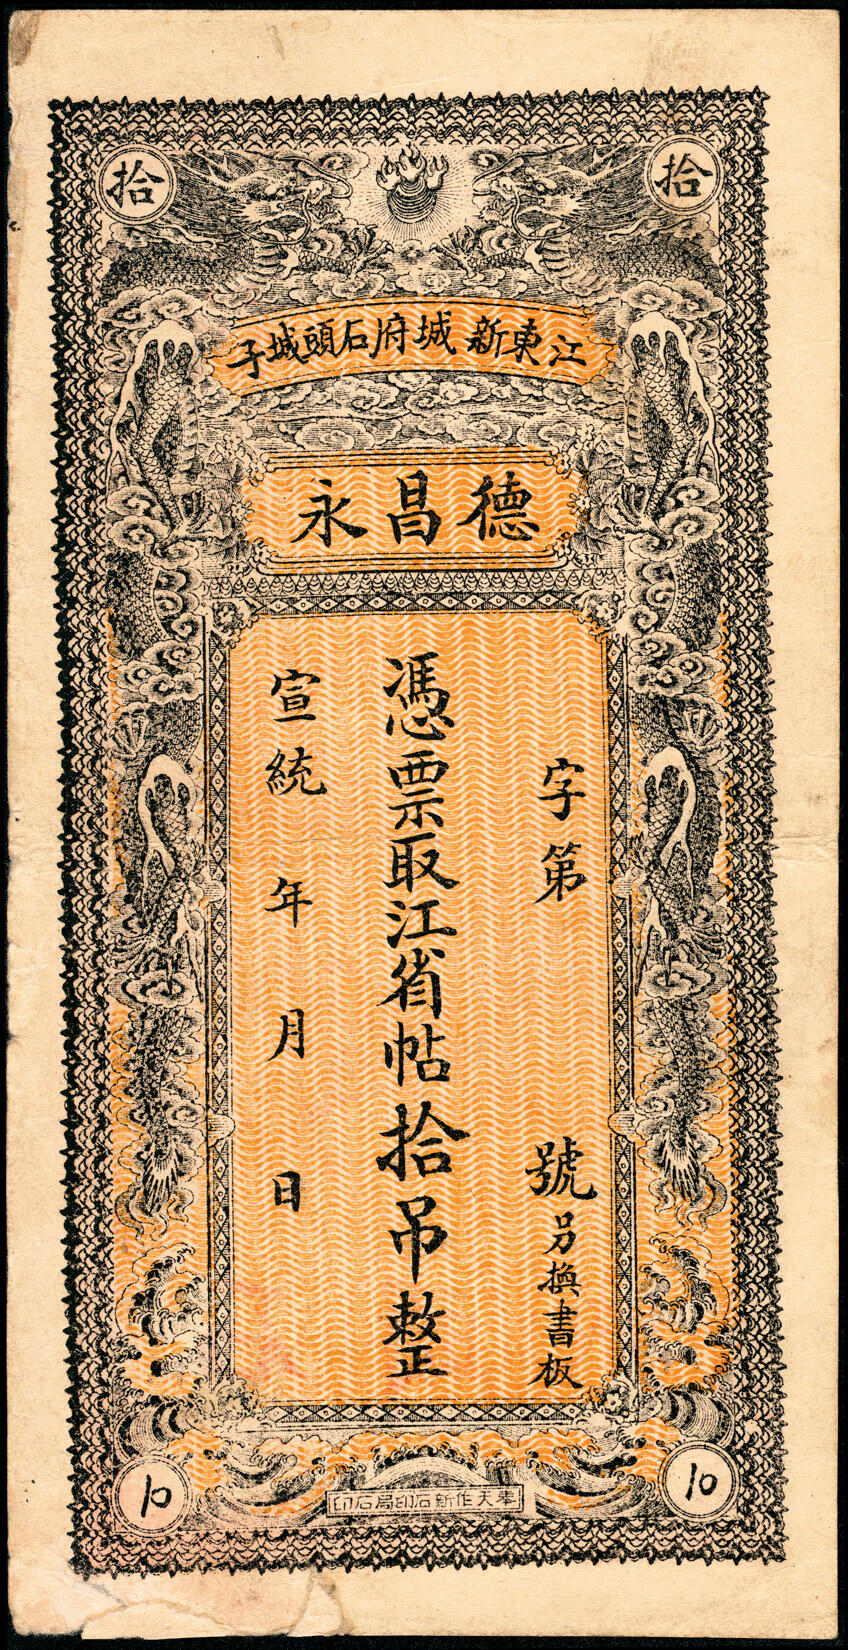 拾
拾
江東新城府石頭城子
德昌永
字第 號另換書板
憑票取江省帖拾吊整
宣統 年 月 日
10
10
奉天作新石印局石印